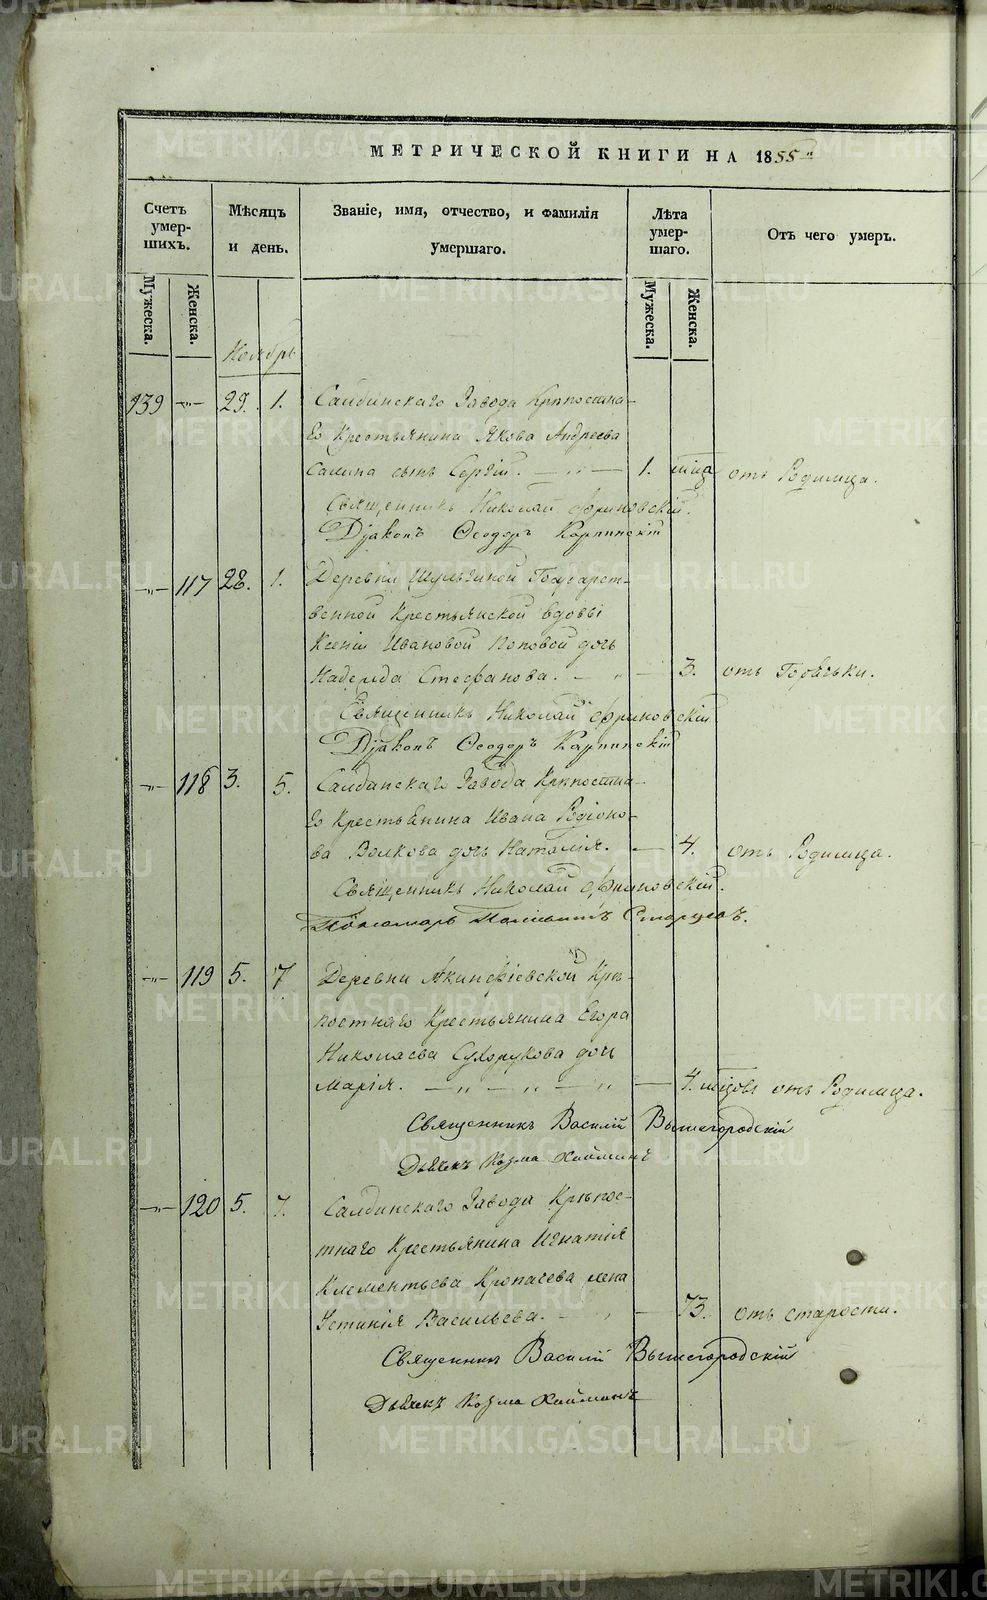 МЕТРИЧЕСКОЙ КНИГИ НА 1855
Счетъ умер-шихъ.
Мѣсяцъ и день.
Званіе, имя, отчество, и фамилія умершаго.
Лѣта умер-шаго.
Отъ чего умеръ.
Мужеска. Женска. Мужеска. Женска.
Ноябрь
139 —"— 29. 1. Салдинскаго Завода Крѣпостна-
го Крестьянина Якова Андреева
Салина сынъ Сергій. — " — 1. мѣца отъ Родимца.
Священникъ Николай Фриновскій.
Діаконъ Феодоръ Карпинскій
—"— 117 28. 1. Деревни Шулыгиной Государст-
венной Крестьянской вдовы
Ксеніи Ивановой Поповой дочь
Надежда Стефанова. — " — 3. отъ Горячки.
Священникъ Николай Фриновскій
Діаконъ Феодоръ Карпинскій
—"— 118 3. 5. Салдинскаго Завода Крѣпостна-
го Крестьянина Ивана Родіоно-
ва Волкова дочь Наталія. — 4. отъ Родимца.
Священникъ Николай Фриновскій.
Пономарь Старцовъ.
—"— 119 5. 7 Деревни Акинфіевской Крѣ-
постнаго Крестьянина Егора
Николаева Сухорукова дочь
Марія. — " — " — " — 4. мѣцовъ отъ Родимца.
Священникъ Василій Вышегородскій
Дьячекъ Козма Хайминъ
—"— 120 5. 7. Салдинскаго Завода Крѣпос-
тнаго Крестьянина Игнатія
Климентьева Кропачева жена
Устинія Васильева. — " — 73. отъ старости.
Священникъ Василій Вышегородскій
Дьячекъ Козма Хайминъ
METRIKI.GASO-URAL.RU